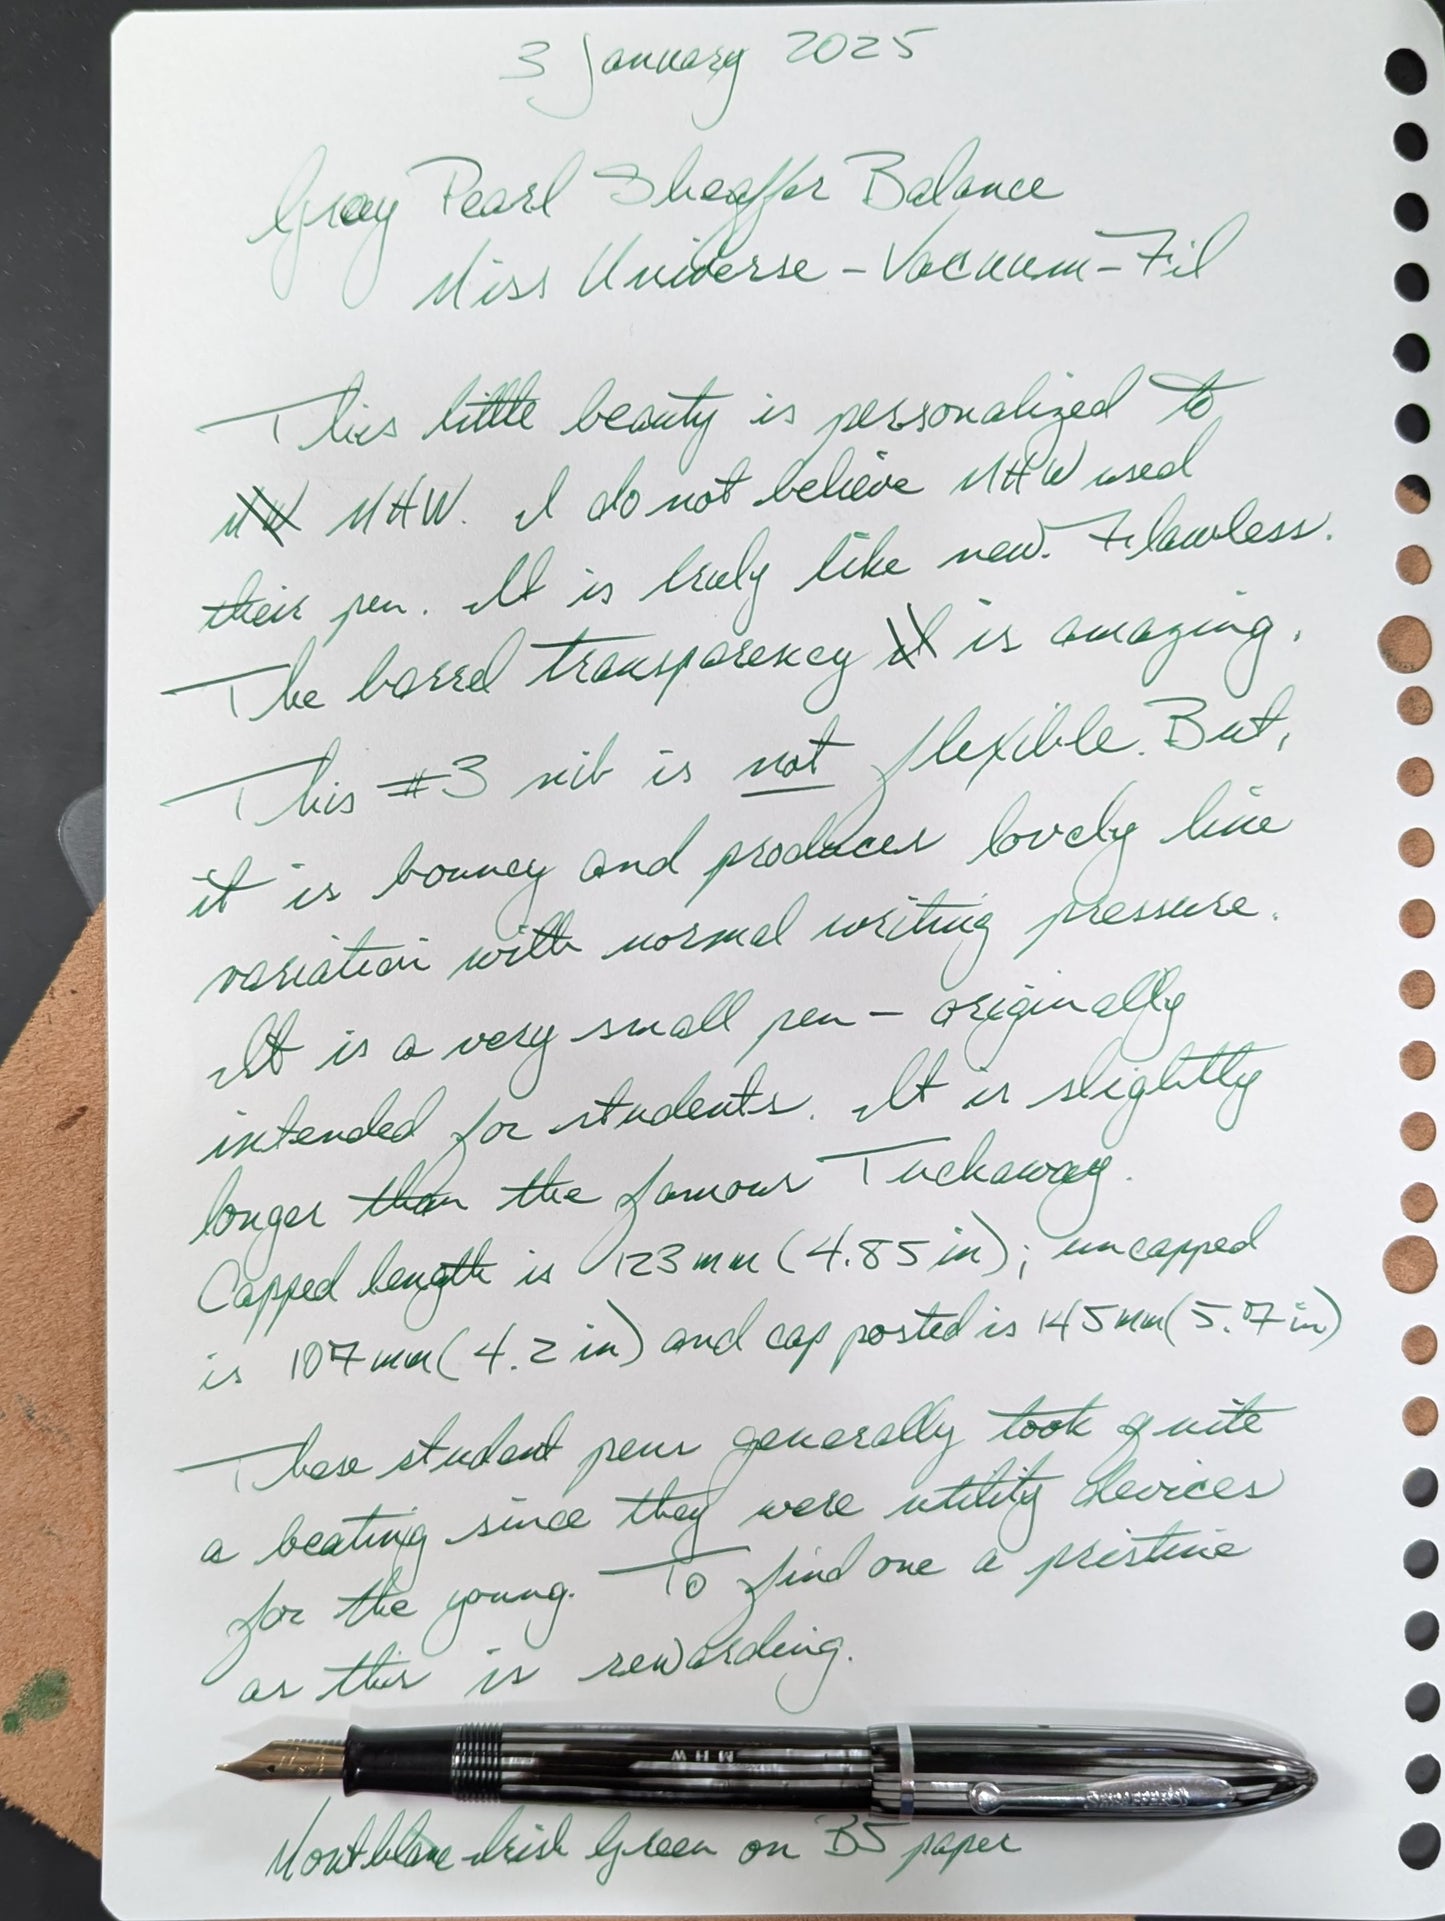 3 January 2025
Gray Pearl Sheaffer Balance
Miss Universe - Vacuum-Fil
This little beauty is personalized to
MHW. I do not believe MHW used
their pen. It is truly like new. Flawless.
The barrel transparency is amazing.
This #3 nib is not flexible. But,
it is bouncy and produces lovely line
variation with normal writing pressure.
It is a very small pen - originally
intended for students. It is slightly
longer than the famous Tuckaway.
Capped length is 123mm (4.85in); uncapped
is 107mm (4.2in) and cap posted is 145mm (5.7in)
These student pens generally took quite
a beating since they were utility devices
for the young. To find one a pristine
as this is rewarding.
MHW
SHEAFFER'S
Montblanc Irish Green on B5 paper